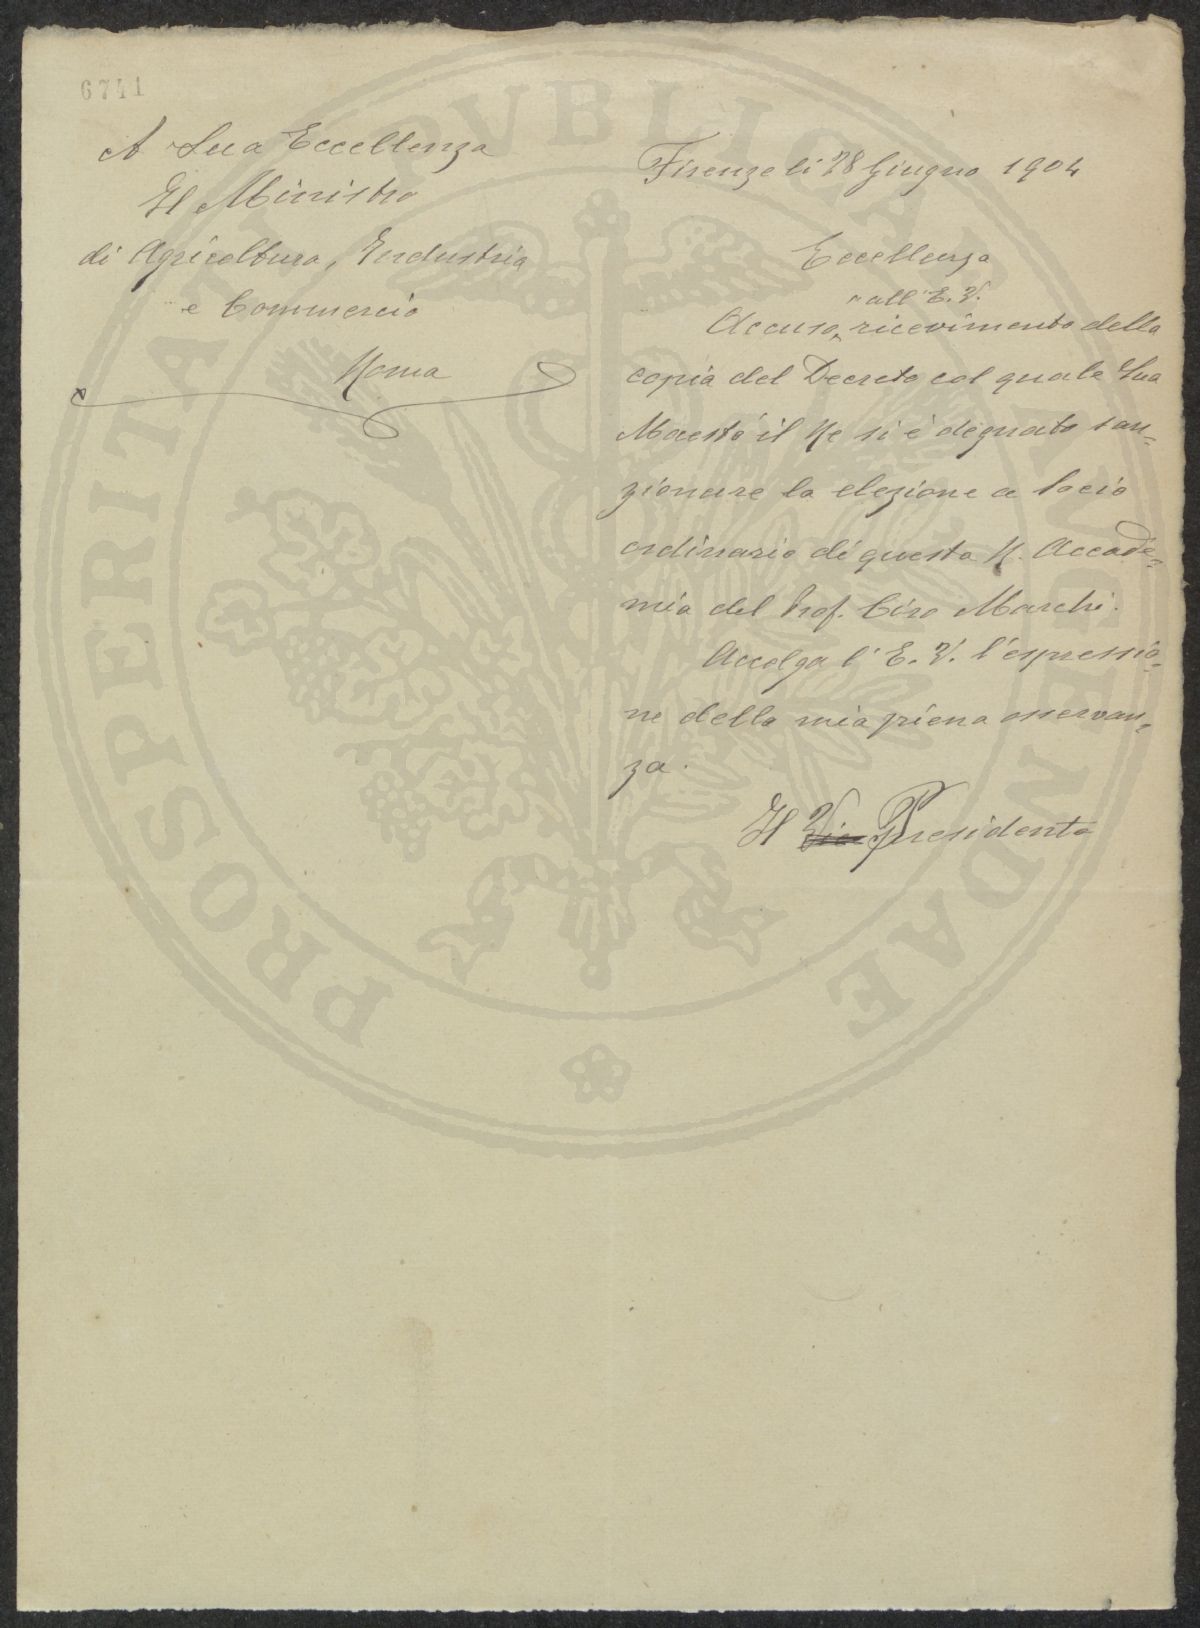 6741
A Sua Eccellenza
Il Ministro
di Agricoltura, Industria
e Commercio
Roma
Firenze li 28 Giugno 1904
Eccellenza
all'E. V.
Accuso ricevimento della
copia del Decreto col quale Sua
Maestà il Re si è degnato san-
zionare la elezione a Socio
ordinario di questa R. Accade-
mia del Prof. Ciro Marchi.
Accolga l'E. V. l'espressio-
ne della mia piena osservan-
za.
Il Vice Presidente
PROSPERITATI PVBLICAE AVGENDAE